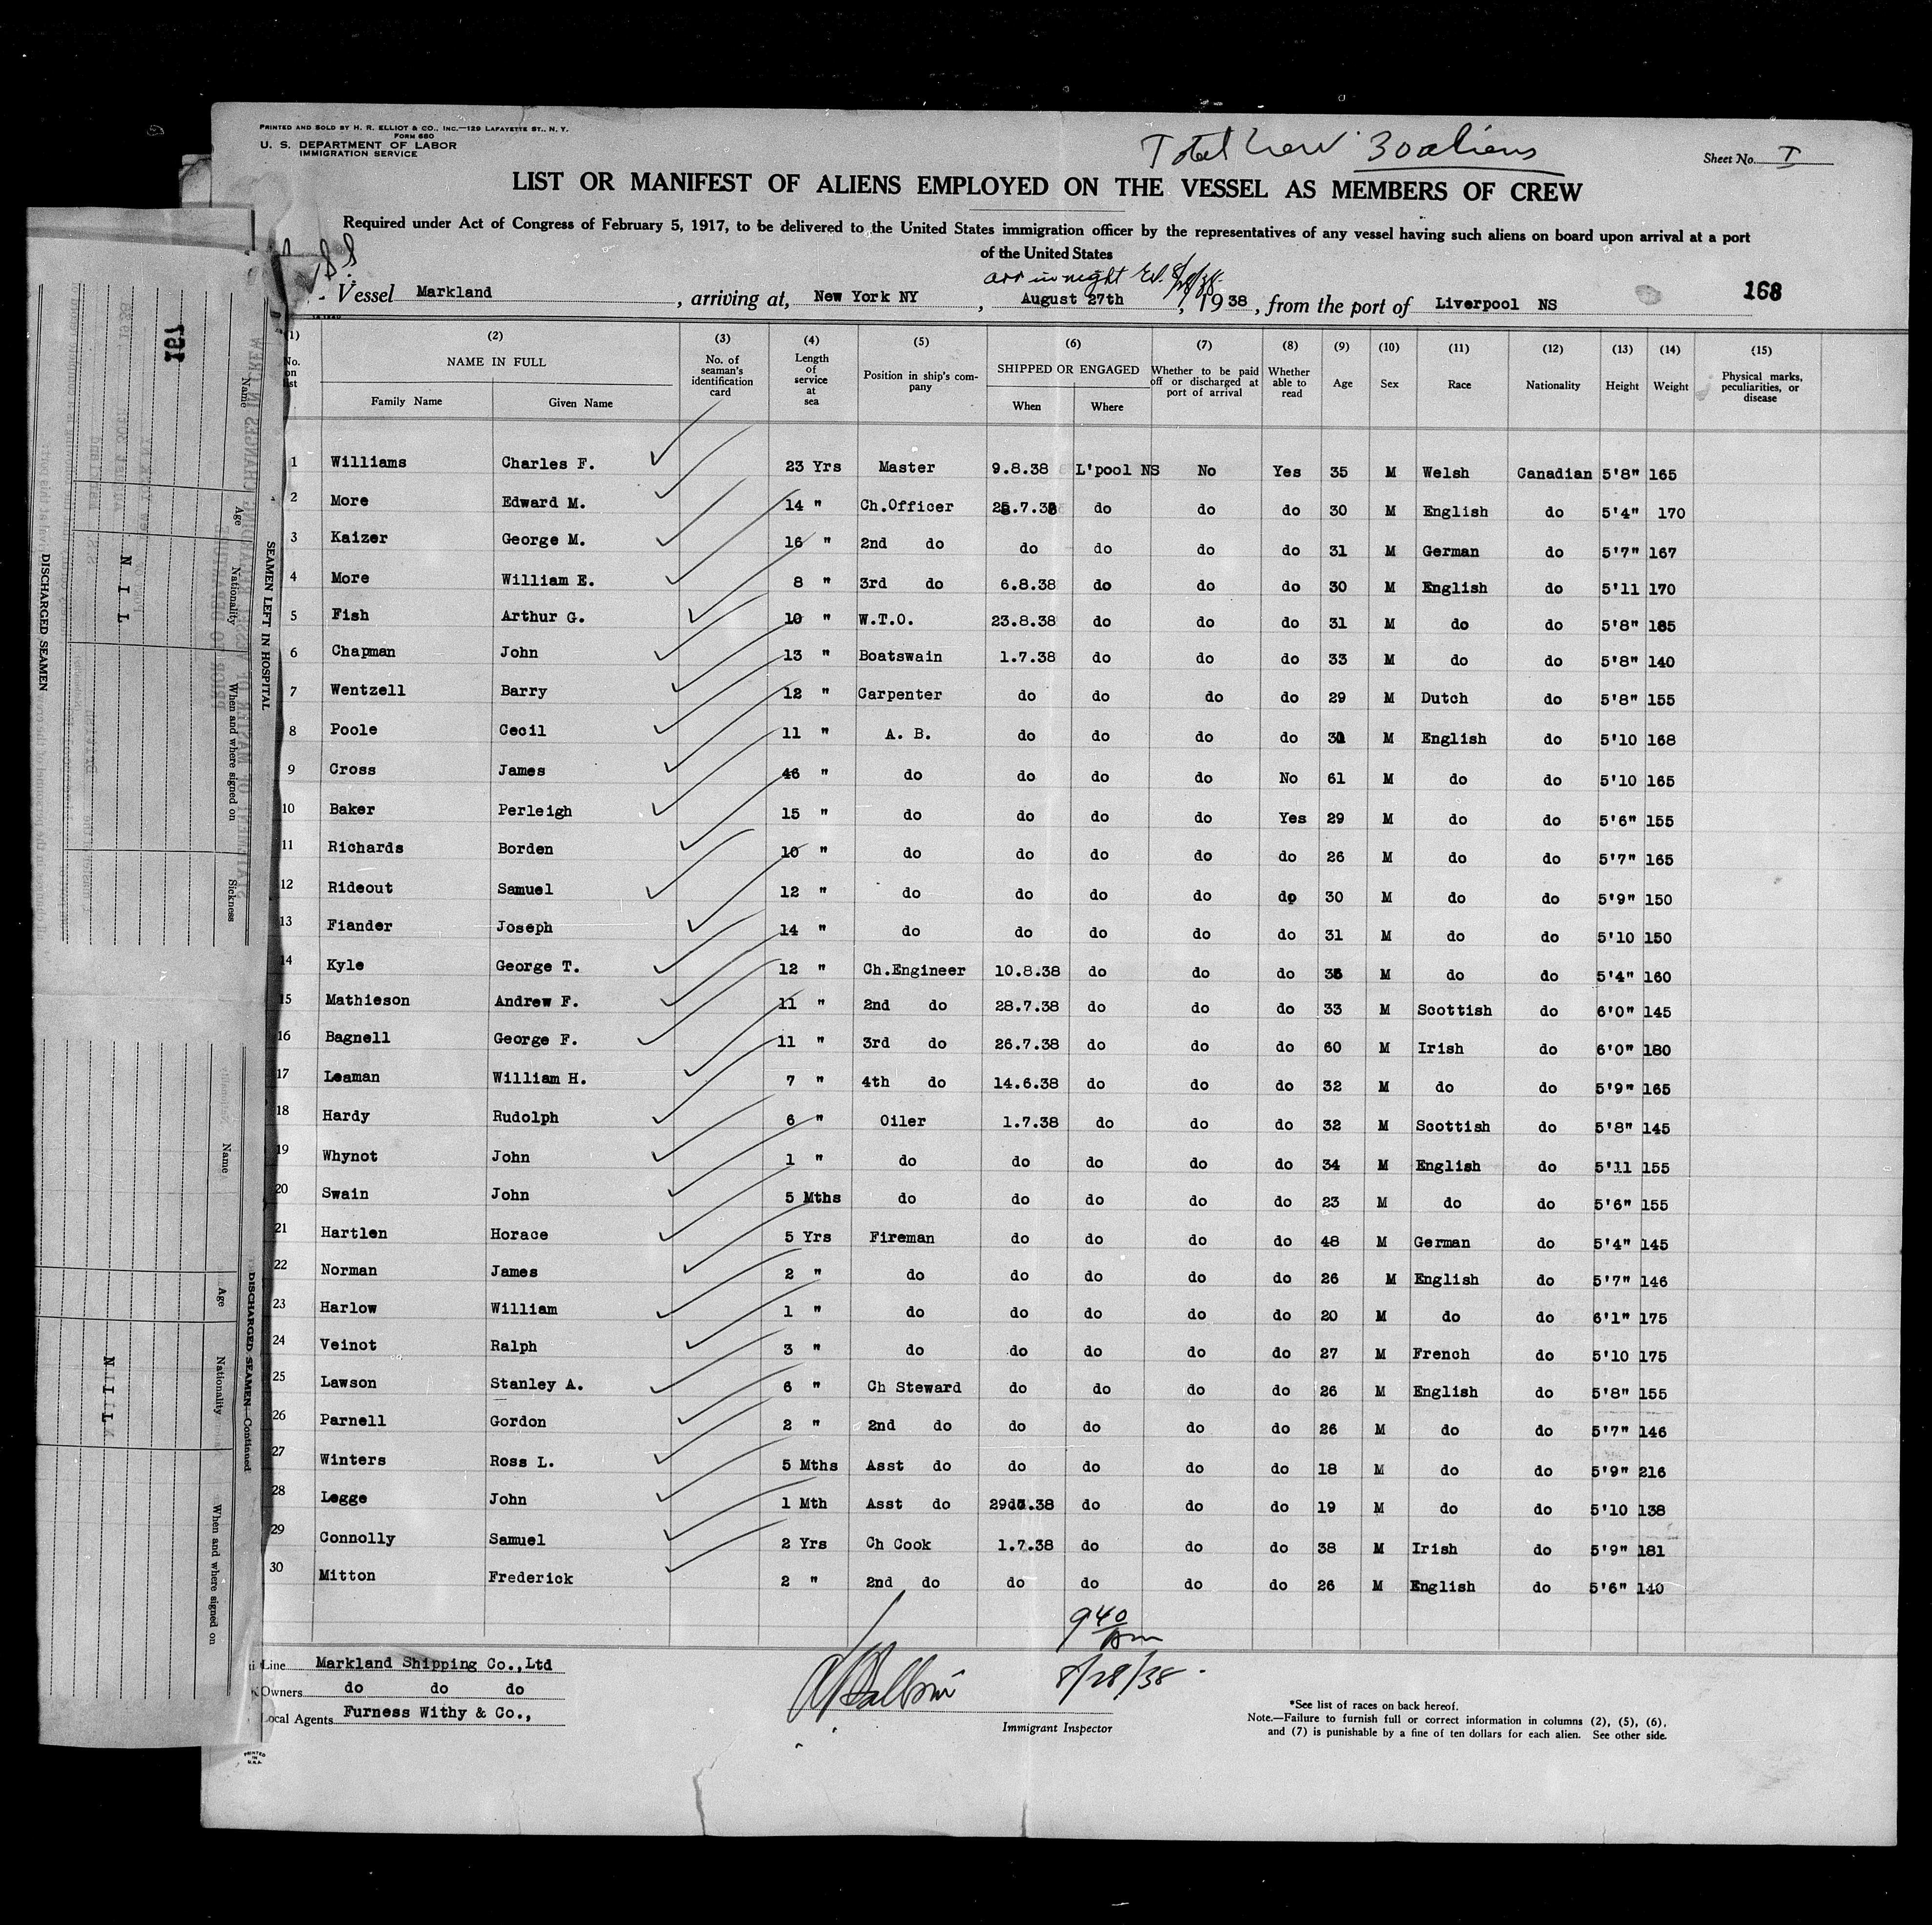 PRINTED AND SOLD BY H. R. ELLIOT & CO., INC.—129 LAFAYETTE ST., N. Y.
FORM 680
U. S. DEPARTMENT OF LABOR
IMMIGRATION SERVICE
Total crew 30 aliens
Sheet No. I
LIST OR MANIFEST OF ALIENS EMPLOYED ON THE VESSEL AS MEMBERS OF CREW
Required under Act of Congress of February 5, 1917, to be delivered to the United States immigration officer by the representatives of any vessel having such aliens on board upon arrival at a port
of the United States
arr in night
Vessel Markland, arriving at, New York NY, August 27th, 1938, from the port of Liverpool NS
168
(1) (2) (3) (4) (5) (6) (7) (8) (9) (10) (11) (12) (13) (14) (15)
No. on list NAME IN FULL Family Name Given Name No. of seaman's identification card Length of service at sea Position in ship's company SHIPPED OR ENGAGED When Where Whether to be paid off or discharged at port of arrival Whether able to read Age Sex Race Nationality Height Weight Physical marks, peculiarities, or disease
1 Williams Charles F. 23 Yrs Master 9.8.38 L'pool NS No Yes 35 M Welsh Canadian 5'8" 165
2 More Edward M. 14 " Ch.Officer .7.38 do do do 30 M English do 5'4" 170
3 Kaizer George M. 16 " 2nd do do do do do 31 M German do 5'7" 167
4 More William E. 8 " 3rd do 6.8.38 do do do 30 M English do 5'11 170
5 Fish Arthur G. 10 " W.T.O. 23.8.38 do do do 31 M do do 5'8" 185
6 Chapman John 13 " Boatswain 1.7.38 do do do 33 M do do 5'8" 140
7 Wentzell Barry 12 " Carpenter do do do do 29 M Dutch do 5'8" 155
8 Poole Cecil 11 " A. B. do do do do M English do 5'10 168
9 Cross James 46 " do do do do No 61 M do do 5'10 165
10 Baker Perleigh 15 " do do do do Yes 29 M do do 5'6" 155
11 Richards Borden 10 " do do do do do 26 M do do 5'7" 165
12 Rideout Samuel 12 " do do do do do 30 M do do 5'9" 150
13 Fiander Joseph 14 " do do do do do 31 M do do 5'10 150
14 Kyle George T. 12 " Ch.Engineer 10.8.38 do do do M do do 5'4" 160
15 Mathieson Andrew F. 11 " 2nd do 28.7.38 do do do 33 M Scottish do 6'0" 145
16 Bagnell George F. 11 " 3rd do 26.7.38 do do do 60 M Irish do 6'0" 180
17 Leaman William H. 7 " 4th do 14.6.38 do do do 32 M do do 5'9" 165
18 Hardy Rudolph 6 " Oiler 1.7.38 do do do 32 M Scottish do 5'8" 145
19 Whynot John 1 " do do do do do 34 M English do 5'11 155
20 Swain John 5 Mths do do do do do 23 M do do 5'6" 155
21 Hartlen Horace 5 Yrs Fireman do do do do 48 M German do 5'4" 145
22 Norman James 2 " do do do do do 26 M English do 5'7" 146
23 Harlow William 1 " do do do do do 20 M do do 6'1" 175
24 Veinot Ralph 3 " do do do do do 27 M French do 5'10 175
25 Lawson Stanley A. 6 " Ch Steward do do do do 26 M English do 5'8" 155
26 Parnell Gordon 2 " 2nd do do do do do 26 M do do 5'7" 146
27 Winters Ross L. 5 Mths Asst do do do do do 18 M do do 5'9" 216
28 Legge John 1 Mth Asst do .38 do do do 19 M do do 5'10 138
29 Connolly Samuel 2 Yrs Ch Cook 1.7.38 do do do 38 M Irish do 5'9" 181
30 Mitton Frederick 2 " 2nd do do do do do 26 M English do 5'6" 140
9 40 am
8/28/38
Line Markland Shipping Co.,Ltd
Owners do do do
Local Agents Furness Withy & Co.,
Immigrant Inspector
*See list of races on back hereof.
Note.—Failure to furnish full or correct information in columns (2), (5), (6),
and (7) is punishable by a fine of ten dollars for each alien. See other side.
PRINTED IN U.S.A.
191
SEAMEN LEFT IN HOSPITAL
Name Age Nationality When and where signed on Sickness
N I L
DISCHARGED SEAMEN
DISCHARGED SEAMEN—Continued
Name Age Nationality When and where signed on